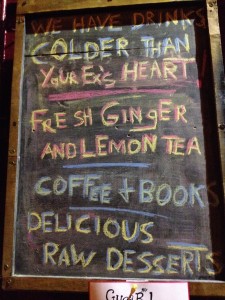 WE HAVE DRINKS
COLDER THAN
YOUR EXS HEART!
FRESH GINGER
AND LEMON TEA
COFFEE + BOOKS
DELICIOUS
RAW DESSERTS